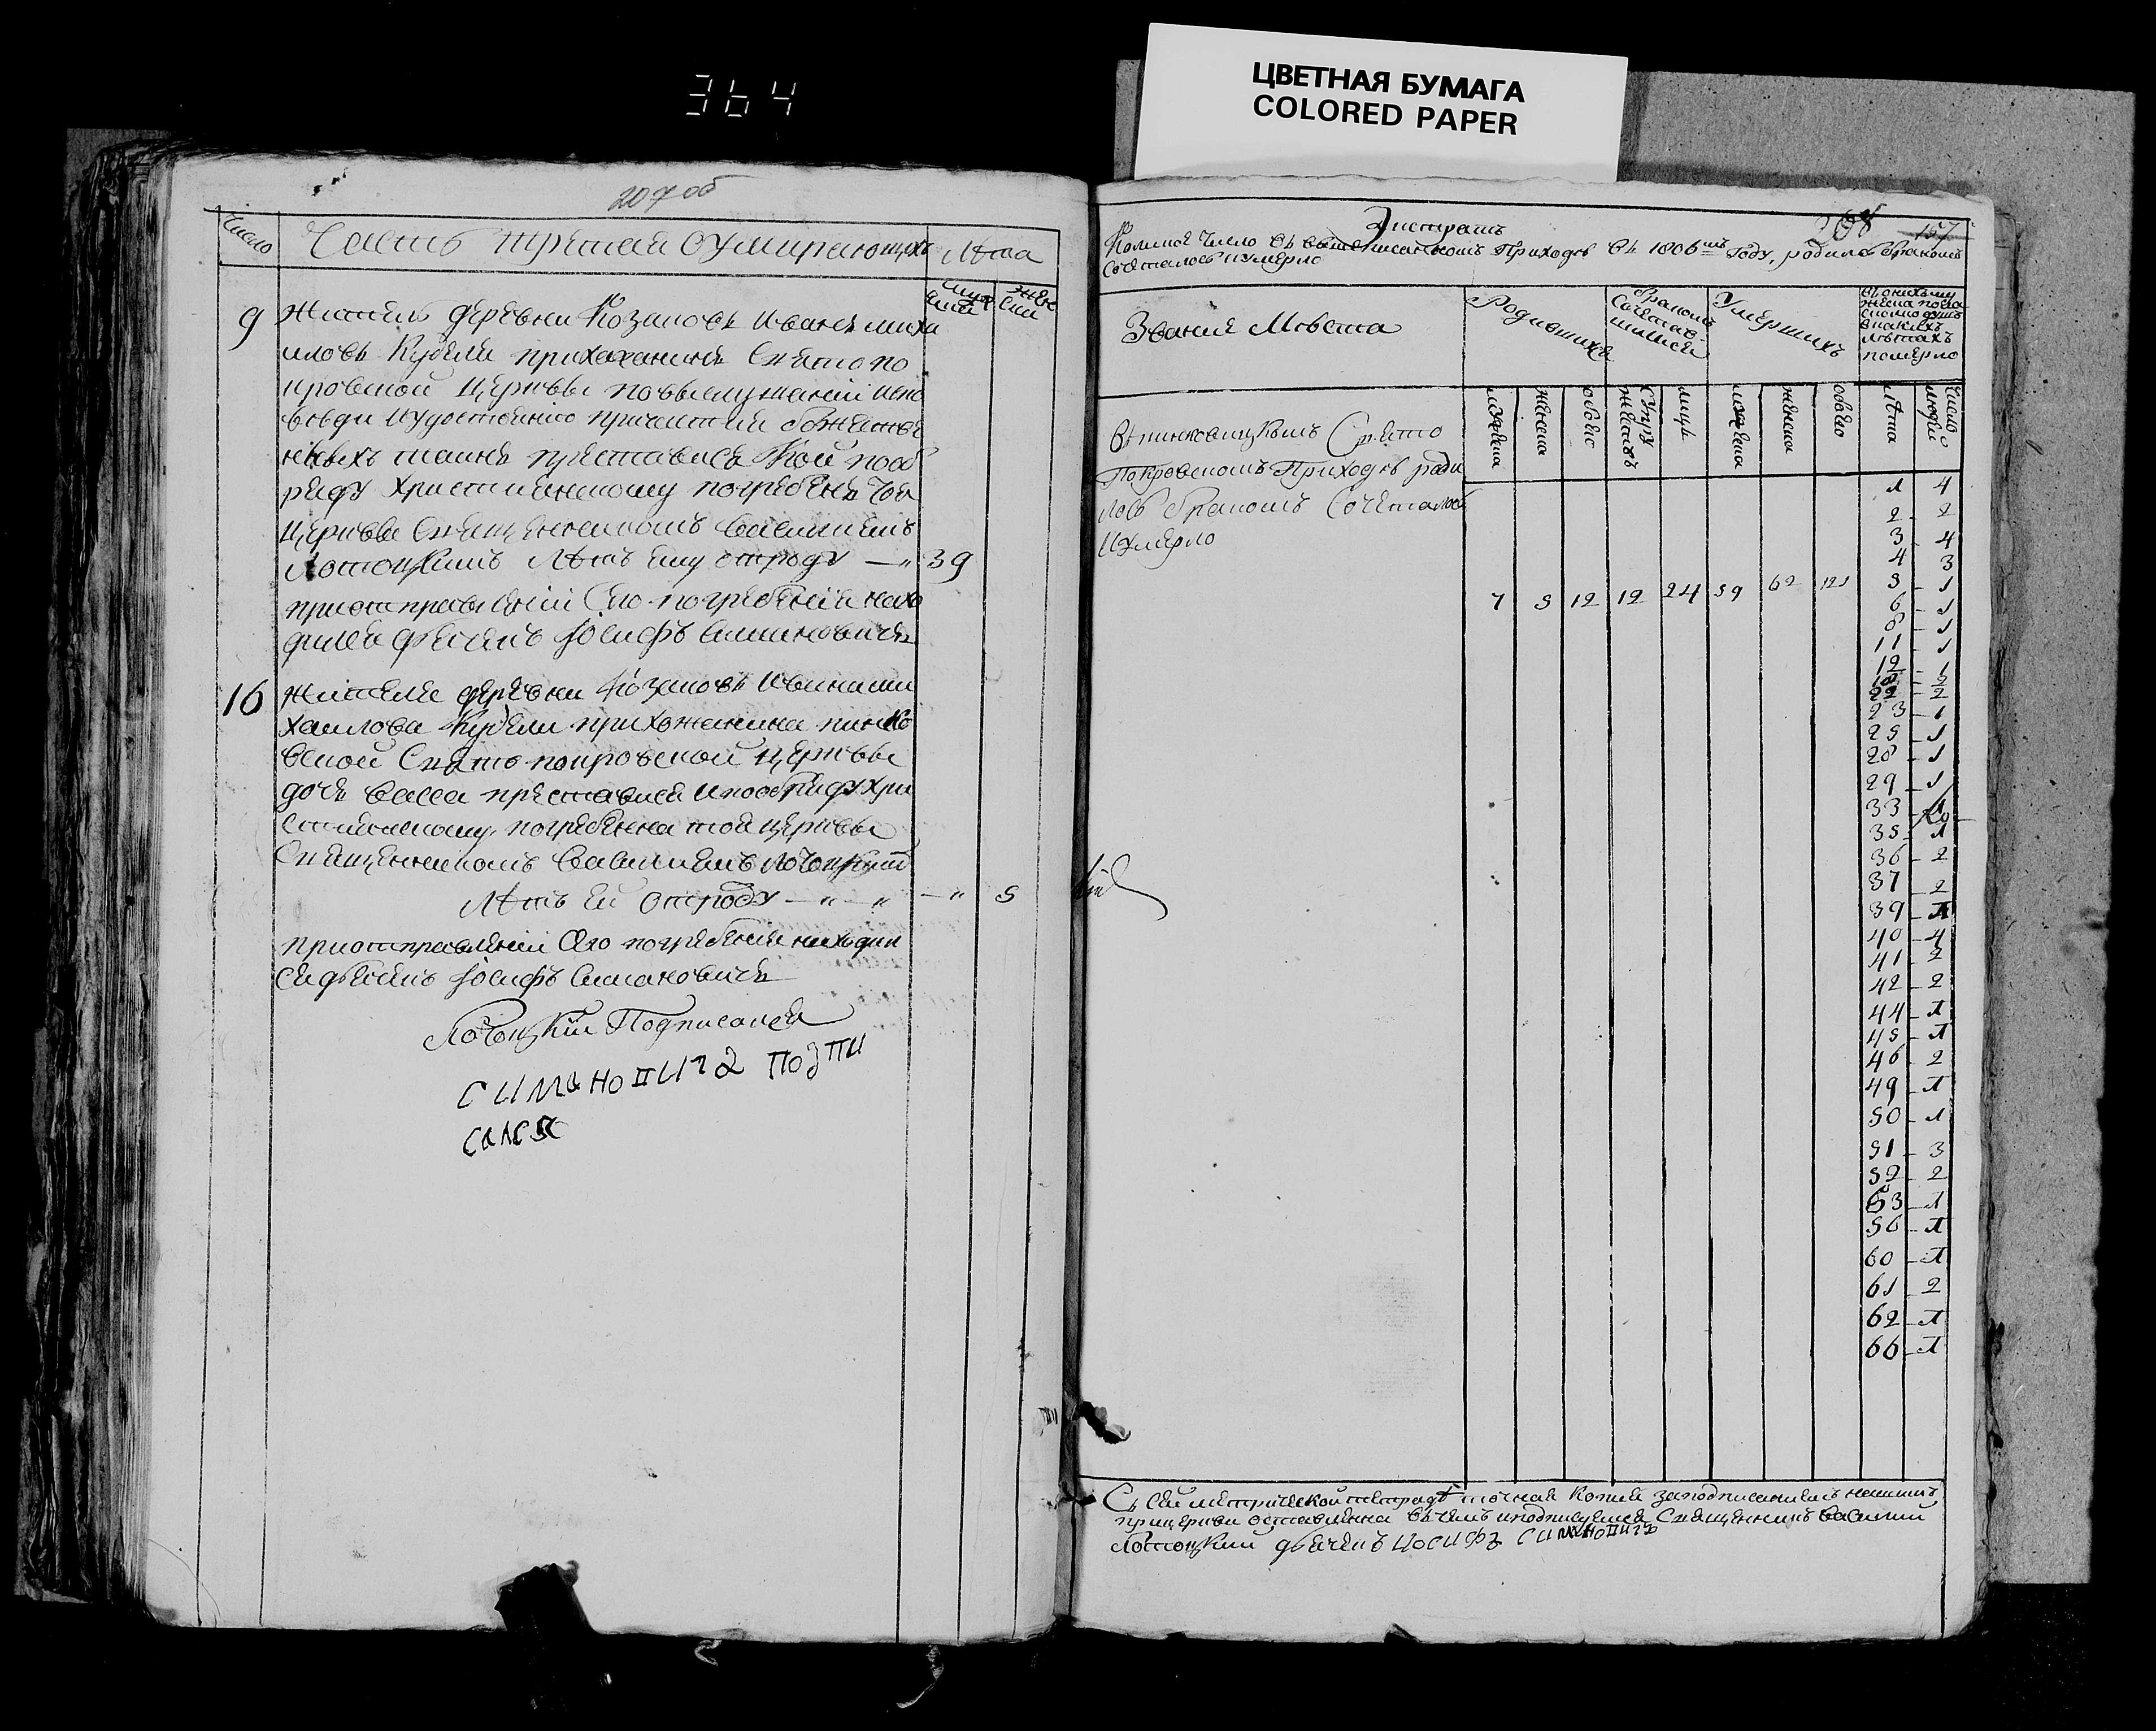 364
ЦВЕТНАЯ БУМАГА
COLORED PAPER
207 об
Число
Часть третая о умирающихъ
Лѣта
муже ский
жен ский
9
жытель деревни Козаковъ Иванъ миха
иловъ Кубели прихажанинъ Свято по
кровской церквы по выслушаніи испо
вѣди и удостоенію причастия божестве
нныхъ таинъ преставися кой пооб
ряду християнскому погребенъ тоя
церквы Священникомъ Василиемъ
Лотоцкимъ Лѣтъ ему отроду — 39
приотправленіи Сего погребенія нахо
дился дьячекъ Іосифъ Симановичъ
16
жителя деревни Козаковъ Ивана ми
хаилова Кубели прихожанина пинко
вской Свято покровской церквы
дочь Васса преставися и пообряду хри
стиянскому погребенна тоя церквы
Священникомъ Василиемъ Лотоцкимъ
Лѣтъ ей отроду — 5
приотправленіи Сего погребенія находил
ся дьячекъ Іосифъ Симановичъ
Лотоцкій Подписался
СИМАНОВИЧЪ ПОДПИ
САЛСЯ
Экстрактъ
208
157
Коликое Число въ вышеписанномъ Приходѣ въ 1806мъ Году, родилось бракомъ
Сочеталось и умерло
Звание Мѣста
Родившихся
Бракомъ
Сочетав-
шихся
Умершихъ
помѣрло
мужеска
женска
обоего
Супру жествъ
лицъ
мужеска
женска
обоего
лѣта
Число людей
Свято
Покровскомъ Приходѣ роди
лось бракомъ Сочеталось
и умерло
7 5 12 12 24 59 62 121
1 4
2 2
3 4
4 3
5 1
6 1
8 1
11 1
12 1
22 2
23 1
25 1
28 1
29 1
33
35 1
36 2
37 2
39 1
40 4
41 2
42 2
44 1
45 1
46 2
49 1
50 1
51 3
52 2
53 1
56 1
60 1
61 2
62 1
66 1
Съ сей метрической тетради точная копия заподписаниемъ нашимъ
прицеркви оставлена вчемъ иподписуемся Священникъ Василий
Лотоцкий дьячекъ ИОСИФЪ СИМАНОВИЧЪ